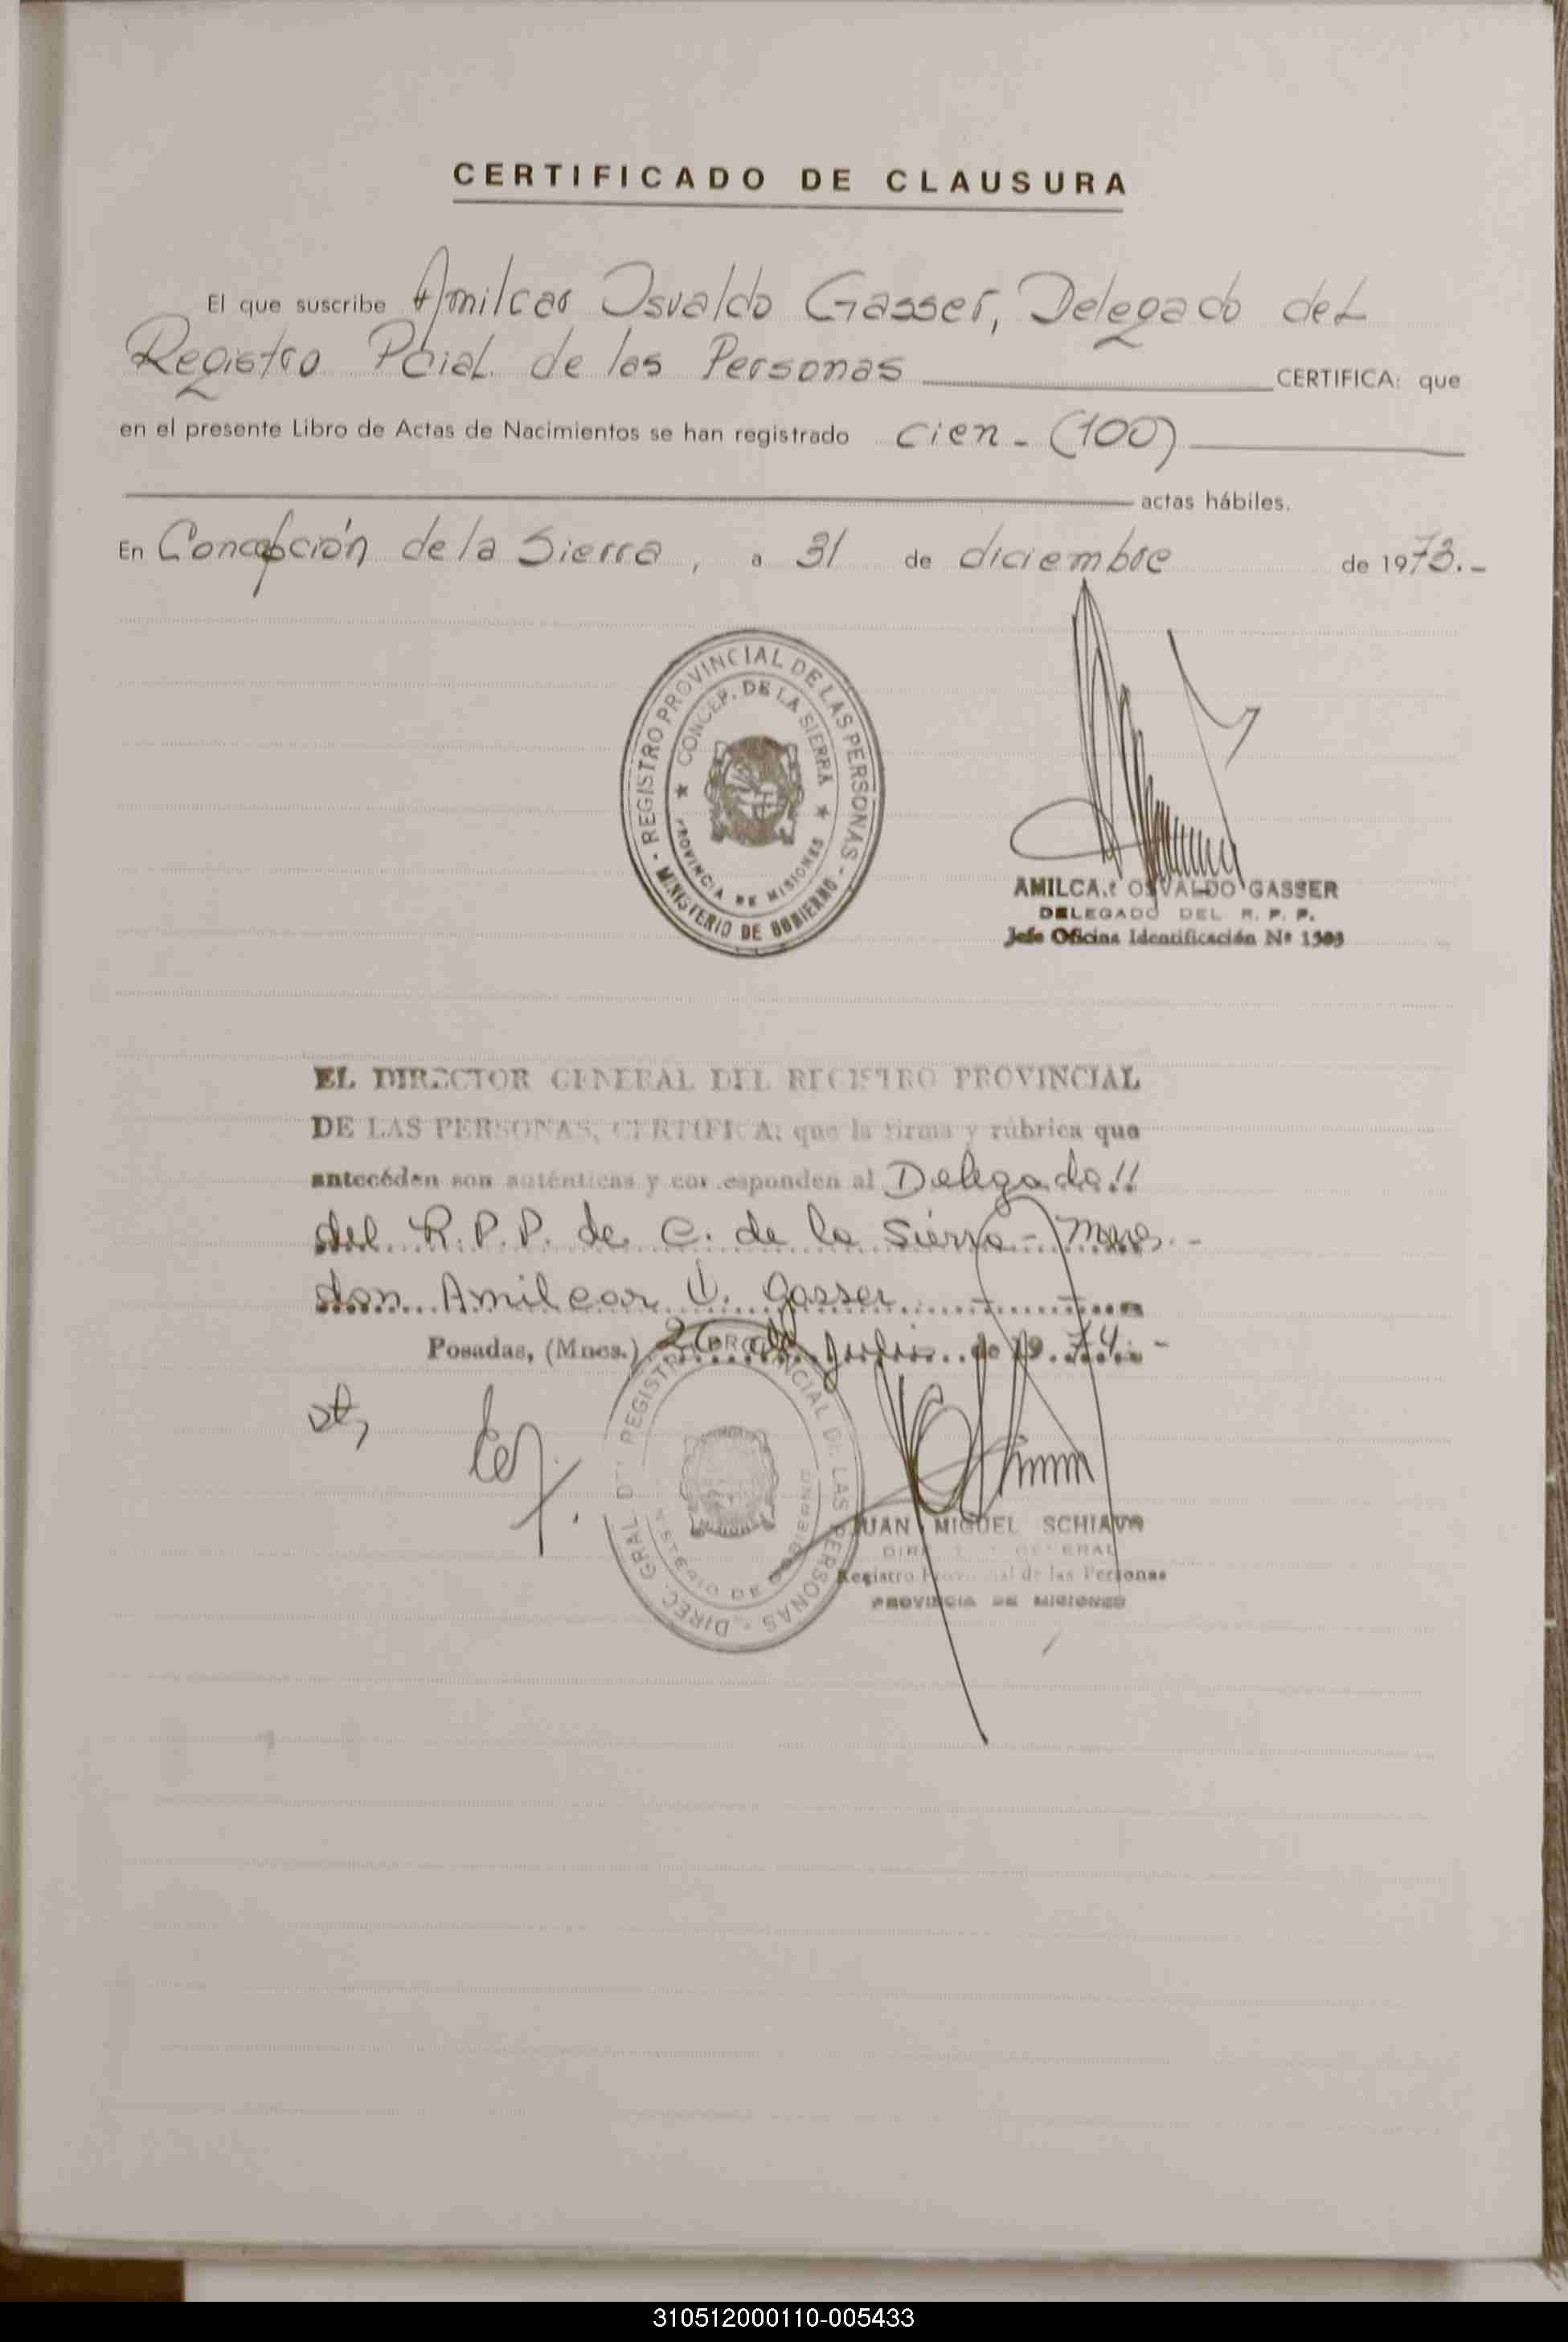 CERTIFICADO DE CLAUSURA
El que suscribe Amilcar Osvaldo Gasser, Delegado del
Registro Pcial. de las Personas CERTIFICA: que
en el presente Libro de Actas de Nacimientos se han registrado cien - (100)
actas hábiles.
En Concepción de la Sierra, a 31 de diciembre de 1973.-
REGISTRO PROVINCIAL DE LAS PERSONAS - MINISTERIO DE GOBIERNO -
★ CONCEP. DE LA SIERRA ★
PROVINCIA DE MISIONES
AMILCAR OSVALDO GASSER
DELEGADO DEL R. P. P.
Jefe Oficina Identificación Nº 1503
EL DIRECTOR GENERAL DEL REGISTRO PROVINCIAL
DE LAS PERSONAS, CERTIFICA: que la firma y rúbrica que
antecéden son auténticas y corresponden al Delegado!!
del R.P.P. de C. de la Sierra - Mnes. -
don Amilcar O. Gasser
Posadas, (Mnes.) 26 de Julio de 19 74. -
DIREC. GRAL. DEL REGISTRO PROVINCIAL DE LAS PERSONAS -
MINISTERIO DE GOBIERNO
JUAN MIGUEL SCHIAVO
DIRECTOR GENERAL
Registro Provincial de las Personas
PROVINCIA DE MISIONES
310512000110-005433